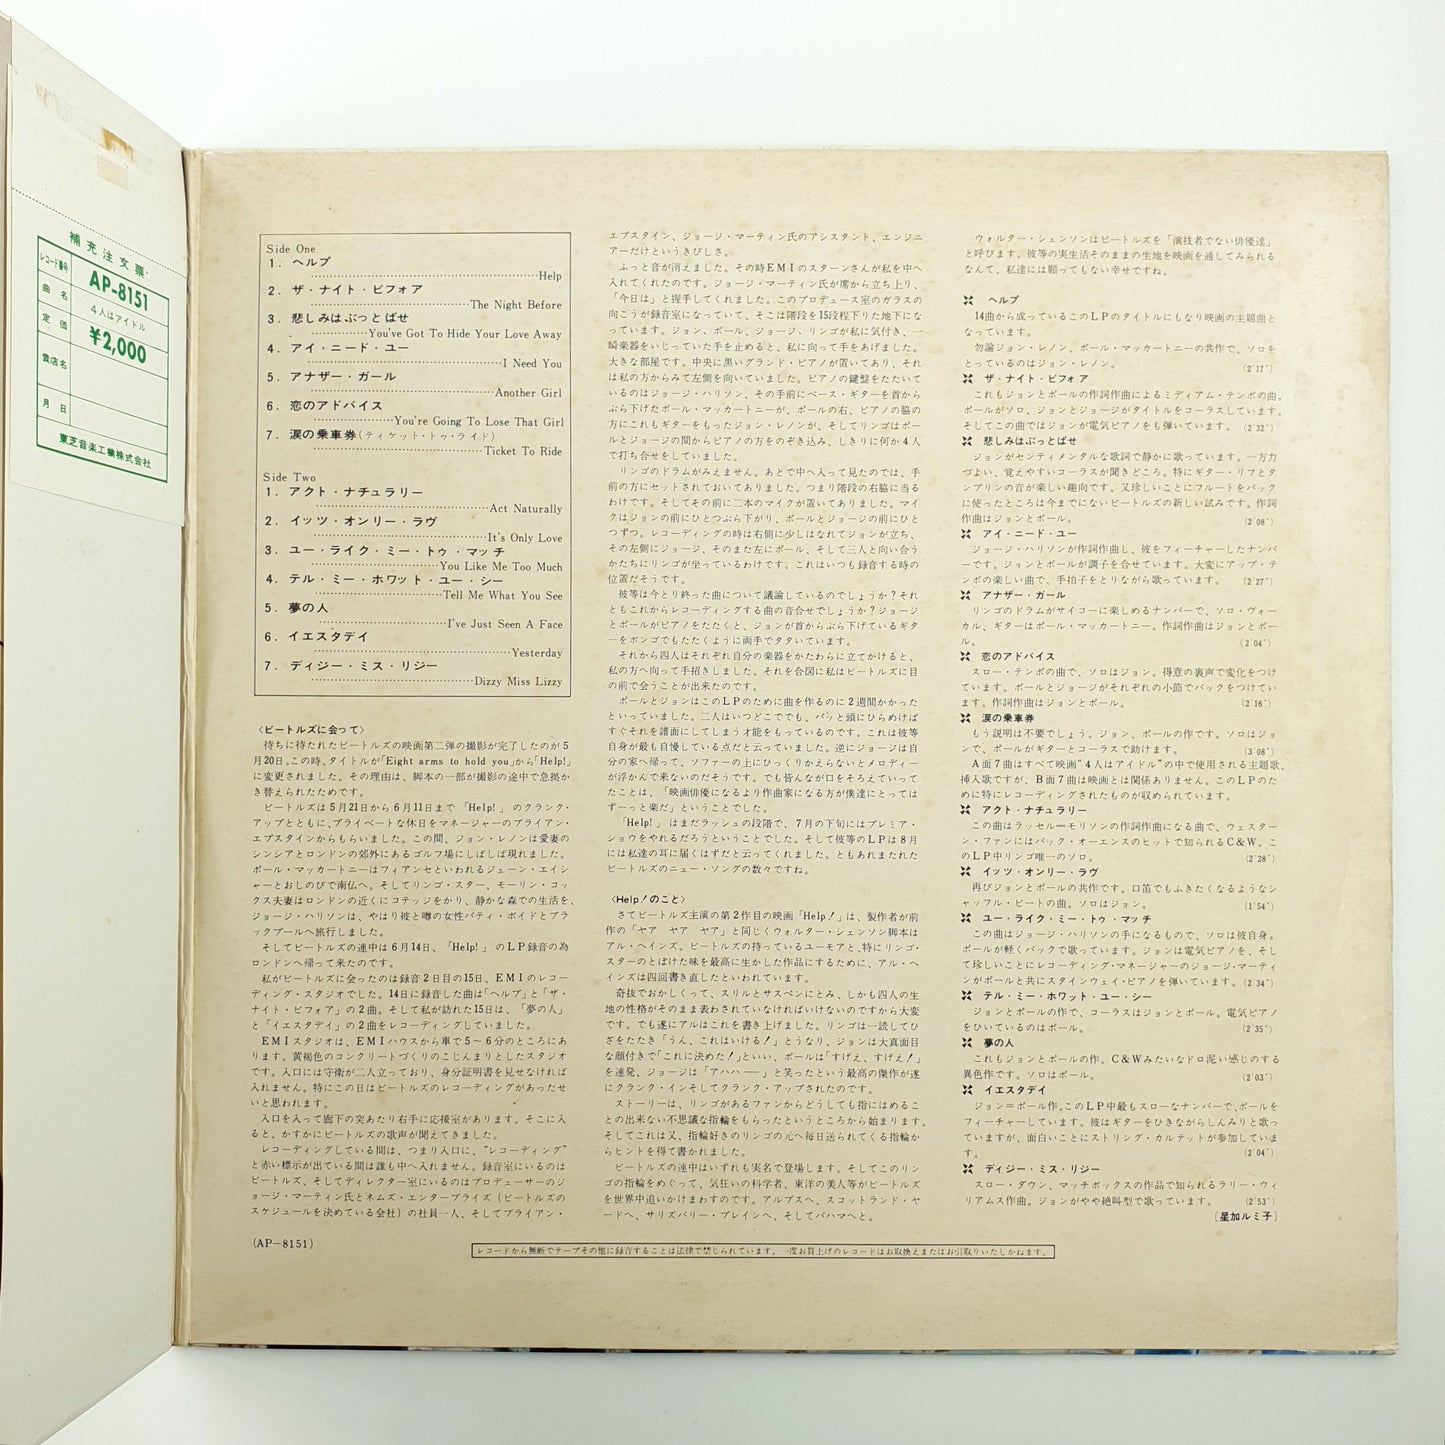 補充注文票
レコード番号
AP-8151
曲名
4人はアイドル
定価
¥2,000
貴店名
月日
東芝音楽工業株式会社
Side One
1. ヘルプ
Help
2. ザ・ナイト・ビフォア
The Night Before
3. 悲しみはぶっとばせ
You've Got To Hide Your Love Away
4. アイ・ニード・ユー
I Need You
5. アナザー・ガール
Another Girl
6. 恋のアドバイス
You're Going To Lose That Girl
7. 涙の乗車券(ティケット・トゥ・ライド)
Ticket To Ride
Side Two
1. アクト・ナチュラリー
Act Naturally
2. イッツ・オンリー・ラヴ
It's Only Love
3. ユー・ライク・ミー・トゥ・マッチ
You Like Me Too Much
4. テル・ミー・ホワット・ユー・シー
Tell Me What You See
5. 夢の人
I've Just Seen A Face
6. イエスタデイ
Yesterday
7. ディジー・ミス・リジー
Dizzy Miss Lizzy
〈ビートルズに会って〉
待ちに待たれたビートルズの映画第二弾の撮影が完了したのが5
月20日。この時、タイトルが「Eight arms to hold you」から「Help!」
に変更されました。その理由は、脚本の一部が撮影の途中で急拠か
き替えられたためです。
ビートルズは5月21日から6月11日まで「Help!」のクランク・
アップとともに、プライベートな休日をマネージャーのブライアン・
エプスタインからもらいました。この間、ジョン・レノンは愛妻の
シンシアとロンドンの郊外にあるゴルフ場にしばしば現れました。
ポール・マッカートニーはフィアンセといわれるジェーン・エイシ
ャーとおしのびで南仏へ。そしてリンゴ・スター、モーリン・コッ
クス夫妻はロンドンの近くにコテッジをかり、静かな森での生活を、
ジョージ・ハリソンは、やはり彼と噂の女性パティ・ボイドとブラ
ックプールへ旅行しました。
そしてビートルズの連中は6月14日、「Help!」のLP録音の為
ロンドンへ帰って来たのです。
私がビートルズに会ったのは録音2日目の15日、EMIのレコー
ディング・スタジオでした。14日に録音した曲は「ヘルプ」と「ザ・
ナイト・ビフォア」の2曲。そして私が訪れた15日は、「夢の人」
と「イエスタデイ」の2曲をレコーディングしていました。
EMIスタジオは、EMIハウスから車で5～6分のところにあ
ります。黄褐色のコンクリートづくりのこじんまりとしたスタジオ
です。入口には守衛が二人立っており、身分証明書を見せなければ
入れません。特にこの日はビートルズのレコーディングがあったせ
いと思われます。
入口を入って廊下の突あたり右手に応接室があります。そこに入
ると、かすかにビートルズの歌声が聞えてきました。
レコーディングしている間は、つまり入口に、“レコーディング”
と赤い標示が出ている間は誰も中へ入れません。録音室にいるのは
ビートルズ、そしてディレクター室にいるのはプロデューサーのジ
ョージ・マーティン氏とネムズ・エンタープライズ(ビートルズの
スケジュールを決めている会社)の社員一人、そしてブライアン・
エプスタイン、ジョージ・マーティン氏のアシスタント、エンジニ
アーだけというきびしさ。
ふっと音が消えました。その時EMIのスターンさんが私を中へ
入れてくれたのです。ジョージ・マーティン氏が席から立ち上り、
「今日は」と握手してくれました。このプロデュース室のガラスの
向こうが録音室になっていて、そこは階段を15段程下りた地下にな
っています。ジョン、ポール、ジョージ、リンゴが私に気付き、一
瞬楽器をいじっていた手を止めると、私に向って手をあげました。
大きな部屋です。中央に黒いグランド・ピアノが置いてあり、それ
は私の方からみて左側を向いていました。ピアノの鍵盤をたたいて
いるのはジョージ・ハリソン、その手前にベース・ギターを首から
ぶら下げたポール・マッカートニーが、ポールの右、ピアノの脇の
方にこれもギターをもったジョン・レノンが、そしてリンゴはポー
ルとジョージの間からピアノの方をのぞき込み、しきりに何か4人
で打合せをしていました。
リンゴのドラムがみえません。あとで中へ入って見たのでは、手
前の方にセットされておいてありました。つまり階段の右脇に当る
わけです。そしてその前に二本のマイクが置いてありました。マイ
クはジョンの前にひとつぶら下がり、ポールとジョージの前にひと
つずつ。レコーディングの時は右側に少しはなれてジョンが立ち、
その左側にジョージ、そのまた左にポール、そして三人と向い合う
かたちにリンゴが坐っているわけです。これはいつも録音する時の
位置だそうです。
彼等は今とり終った曲について議論しているのでしょうか?それ
ともこれからレコーディングする曲の音合せでしょうか?ジョージ
とポールがピアノをたたくと、ジョンが首からぶら下げているギタ
ーをボンゴでもたたくように両手でタタいています。
それから四人はそれぞれ自分の楽器をかたわらに立てかけると、
私の方へ向って手招きしました。それを合図に私はビートルズに目
の前で会うことが出来たのです。
ポールとジョンはこのLPのために曲を作るのに2週間かかった
といっていました。二人はいつどこででも、パッと頭にひらめけば
すぐそれを譜面にしてしまう才能をもっているのです。これは彼等
自身が最も自慢している点だと云っていました。逆にジョージは自
分の家へ帰って、ソファーの上にひっくりかえらないとメロディー
が浮かんで来ないのだそうです。でも皆んなが口をそろえていって
たことは、「映画俳優になるより作曲家になる方が僕達にとっては
ずーっと楽だ」ということでした。
「Help!」はまだラッシュの段階で、7月の下旬にはプレミア・
ショウをやれるだろうということでした。そして彼等のLPは8月
には私達の耳に届くはずだと云ってくれました。ともあれまたれた
ビートルズのニュー・ソングの数々ですね。
〈Help!のこと〉
さてビートルズ主演の第2作目の映画「Help!」は、製作者が前
作の「ヤア ヤア ヤア」と同じくウォルター・シェンソン脚本は
アル・ヘインズ。ビートルズの持っているユーモアと、特にリンゴ・
スターのとぼけた味を最高に生かした作品にするために、アル・ヘ
インズは四回書き直したといわれています。
奇抜でおかしくって、スリルとサスペンにとみ、しかも四人の生
地の性格がそのまま表わされていなければいけないのですから大変
です。でも遂にアルはこれを書き上げました。リンゴは一読してひ
ざをたたき「うん、これはいける!」とうなり、ジョンは大真面目
な顔付きで「これに決めた!」といい、ポールは「すげえ、すげえ!」
を連発、ジョージは「アハハ――」と笑ったという最高の傑作が遂
にクランク・インそしてクランク・アップされたのです。
ストーリーは、リンゴがあるファンからどうしても指にはめるこ
との出来ない不思議な指輪をもらったというところから始まります。
そしてこれは又、指輪好きのリンゴの元へ毎日送られてくる指輪か
らヒントを得て書かれました。
ビートルズの連中はいずれも実名で登場します。そしてこのリン
ゴの指輪をめぐって、気狂いの科学者、東洋の美人等がビートルズ
を世界中追いかけまわすのです。アルプスへ、スコットランド・ヤ
ードへ、サリズバリー・プレインへ、そしてバハマへと。
ウォルター・シェンソンはビートルズを「演技者でない俳優達」
と呼びます。彼等の実生活そのままの生地を映画を通してみられる
なんて、私達には願ってもない幸せですね。
ヘルプ
14曲から成っているこのLPのタイトルにもなり映画の主題曲と
なっています。
勿論ジョン・レノン、ポール・マッカートニーの共作で、ソロを
とっているのはジョン・レノン。 (2'17")
ザ・ナイト・ビフォア
これもジョンとポールの作詞作曲によるミディアム・テンポの曲。
ポールがソロ、ジョンとジョージがタイトルをコーラスしています。
そしてこの曲ではジョンが電気ピアノをも弾いています。 (2'32")
悲しみはぶっとばせ
ジョンがセンティメンタルな歌詞で静かに歌っています。一方力
づよい、覚えやすいコーラスが聞きどころ。特にギター・リフとタ
ンブリンの音が楽しい趣向です。又珍しいことにフルートをバック
に使ったところは今までにないビートルズの新しい試みです。作詞
作曲はジョンとポール。 (2'08")
アイ・ニード・ユー
ジョージ・ハリソンが作詞作曲し、彼をフィーチャーしたナンバ
ーです。ジョンとポールが調子を合せています。大変にアップ・テ
ンポの楽しい曲で、手拍子をとりながら歌っています。 (2'27")
アナザー・ガール
リンゴのドラムがサイコーに楽しめるナンバーで、ソロ・ヴォー
カル、ギターはポール・マッカートニー。作詞作曲はジョンとポー
ル。 (2'04")
恋のアドバイス
スロー・テンポの曲で、ソロはジョン。得意の裏声で変化をつけ
ています。ポールとジョージがそれぞれの小節でバックをつけてい
ます。作詞作曲はジョンとポール。 (2'16")
涙の乗車券
もう説明は不要でしょう。ジョン、ポールの作です。ソロはジョ
ンで、ポールがギターとコーラスで助けます。 (3'08")
A面7曲はすべて映画“4人はアイドル”の中で使用される主題歌、
挿入歌ですが、B面7曲は映画とは関係ありません。このLPのた
めに特にレコーディングされたものが収められています。
アクト・ナチュラリー
この曲はラッセル－モリソンの作詞作曲になる曲で、ウェスター
ン・ファンにはバック・オーエンスのヒットで知られるC&W。こ
のLP中リンゴ唯一のソロ。 (2'28")
イッツ・オンリー・ラヴ
再びジョンとポールの共作です。口笛でもふきたくなるようなシ
ャッフル・ビートの曲。ソロはジョン。 (1'54")
ユー・ライク・ミー・トゥ・マッチ
この曲はジョージ・ハリソンの手になるもので、ソロは彼自身。
ポールが軽くバックで歌っています。ジョンは電気ピアノを、そし
て珍しいことにレコーディング・マネージャーのジョージ・マーティ
ンがポールと共にスタインウェイ・ピアノを弾いています。(2'34")
テル・ミー・ホワット・ユー・シー
ジョンとポールの作で、コーラスはジョンとポール。電気ピアノ
をひいているのはポール。 (2'35")
夢の人
これもジョンとポールの作。C&Wみたいなドロ泥い感じのする
異色作です。ソロはポール。 (2'03")
イエスタデイ
ジョン＝ポール作。このLP中最もスローなナンバーで、ポールを
フィーチャーしています。彼はギターをひきながらしんみりと歌っ
ていますが、面白いことにストリング・カルテットが参加していま
す。 (2'04")
ディジー・ミス・リジー
スロー・ダウン、マッチボックスの作品で知られるラリー・ウィ
リアムス作曲。ジョンがやや絶叫型で歌っています。 (2'53")
〔星加ルミ子〕
(AP-8151)
レコードから無断でテープその他に録音することは法律で禁じられています。一度お買上げのレコードはお取換えまたはお引取りいたしかねます。